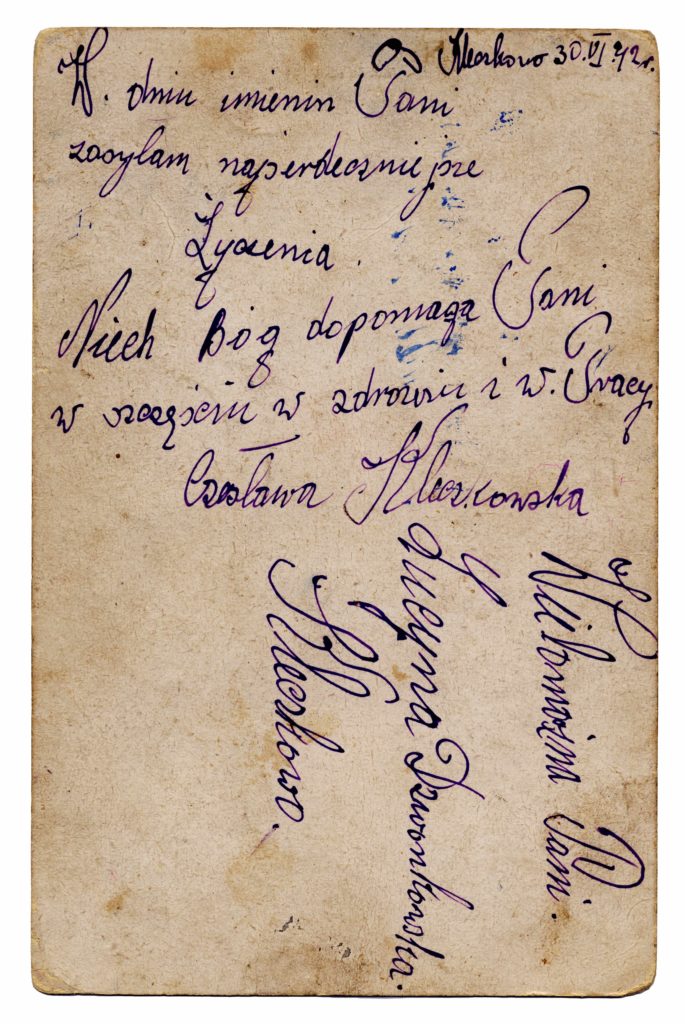 Kleczkowo 30.VI.42r.
W. dniu imienin Pani
zasyłam najserdeczniejsze
Życzenia.
Niech Bóg dopomaga Pani
w szczęściu w zdrowiu i w. Pracy
Czesława Kleczkowska
Wielmożna Pani.
Lucyna Dzwonkowska.
Kleczkowo.